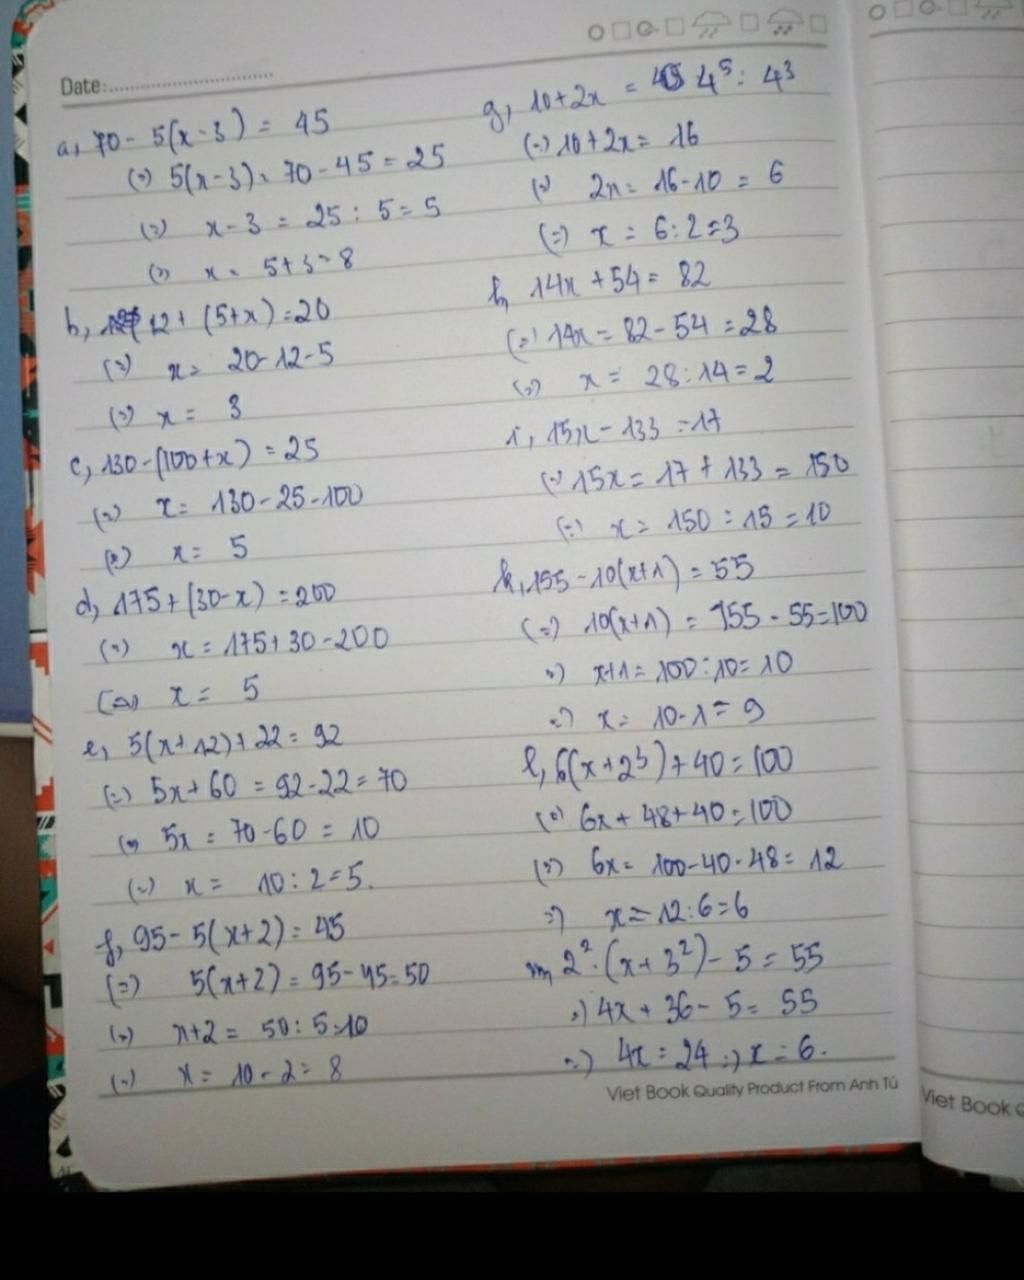 Date:
a, 70 - 5(x-3) = 45
(=) 5(x-3) = 70 - 45 = 25
(=) x - 3 = 25 : 5 = 5
(=) x = 5+3 = 8
b, 12 + (5+x) = 20
(=) x = 20-12-5
(=) x = 3
c, 130-(100+x) = 25
(=) x = 130-25-100
(=) x = 5
d, 175+(30-x) = 200
(=) x = 175+30-200
(=) x = 5
e, 5(x+12)+22 = 92
(=) 5x+60 = 92-22 = 70
(=) 5x = 70-60 = 10
(=) x = 10 : 2 = 5.
f, 95-5(x+2) = 45
(=) 5(x+2) = 95-45 = 50
(=) x+2 = 50 : 5 = 10
(=) x = 10-2 = 8
g, 10+2x = 4⁵ : 4³
(=) 10+2x = 16
(=) 2x = 16-10 = 6
(=) x = 6 : 2 = 3
h, 14x + 54 = 82
(=) 14x = 82-54 = 28
(=) x = 28 : 14 = 2
i, 15x - 133 = 17
(=) 15x = 17 + 133 = 150
(=) x = 150 : 15 = 10
k, 155 - 10(x+1) = 55
(=) 10(x+1) = 155 - 55 = 100
=) x+1 = 100 : 10 = 10
=) x = 10-1 = 9
l, 6(x+2³)+40 = 100
(=) 6x + 48+40 = 100
(=) 6x = 100-40-48 = 12
=) x = 12 : 6 = 6
m, 2² . (x+3²) - 5 = 55
=) 4x + 36 - 5 = 55
=) 4x = 24 =) x = 6.
Viet Book Quality Product From Anh Tú
Viet Book